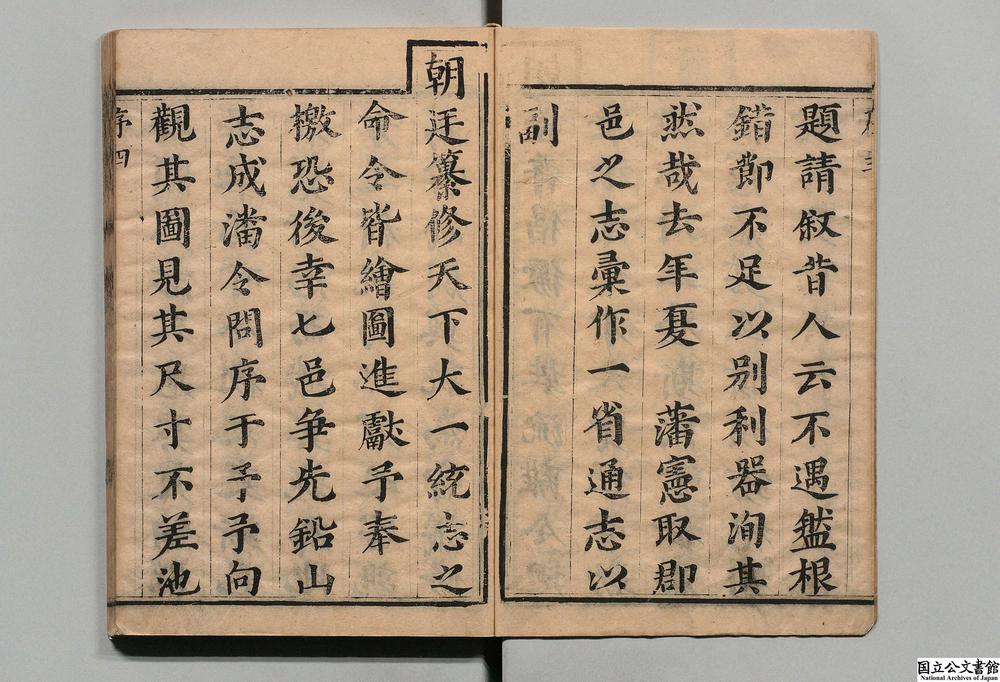 題請敘昔人云不遇盤根
錯節不足以別利器洵其
然哉去年夏藩憲取郡
邑之志彙作一省通志以
副
朝廷纂修天下大一統志之
命令皆繪圖進獻予奉
檄恐後幸七邑爭先鉛山
志成潘令問序于予予向
觀其圖見其尺寸不差池
序四
国立公文書館
National Archives of Japan